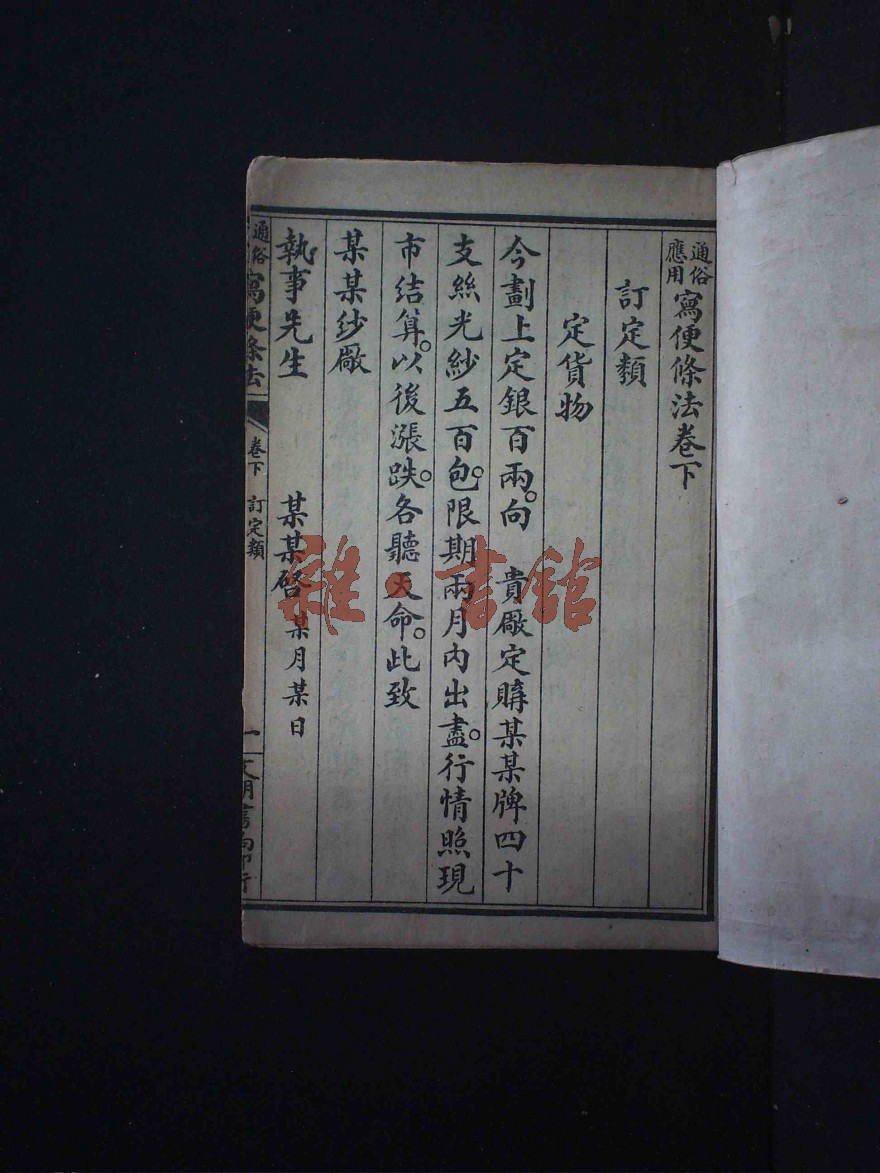 通俗應用寫便條法卷下
訂定類
定貨物
今劃上定銀百兩。向　貴廠定購某某牌四十
支絲光紗五百包。限期兩月內出盡。行情照現
市結算。以後漲跌。各聽天命。此致
某某紗廠
執事先生　某某啓　某月某日
通俗 寫便條法　卷下　訂定類　一　文明書局印行
雜·書館